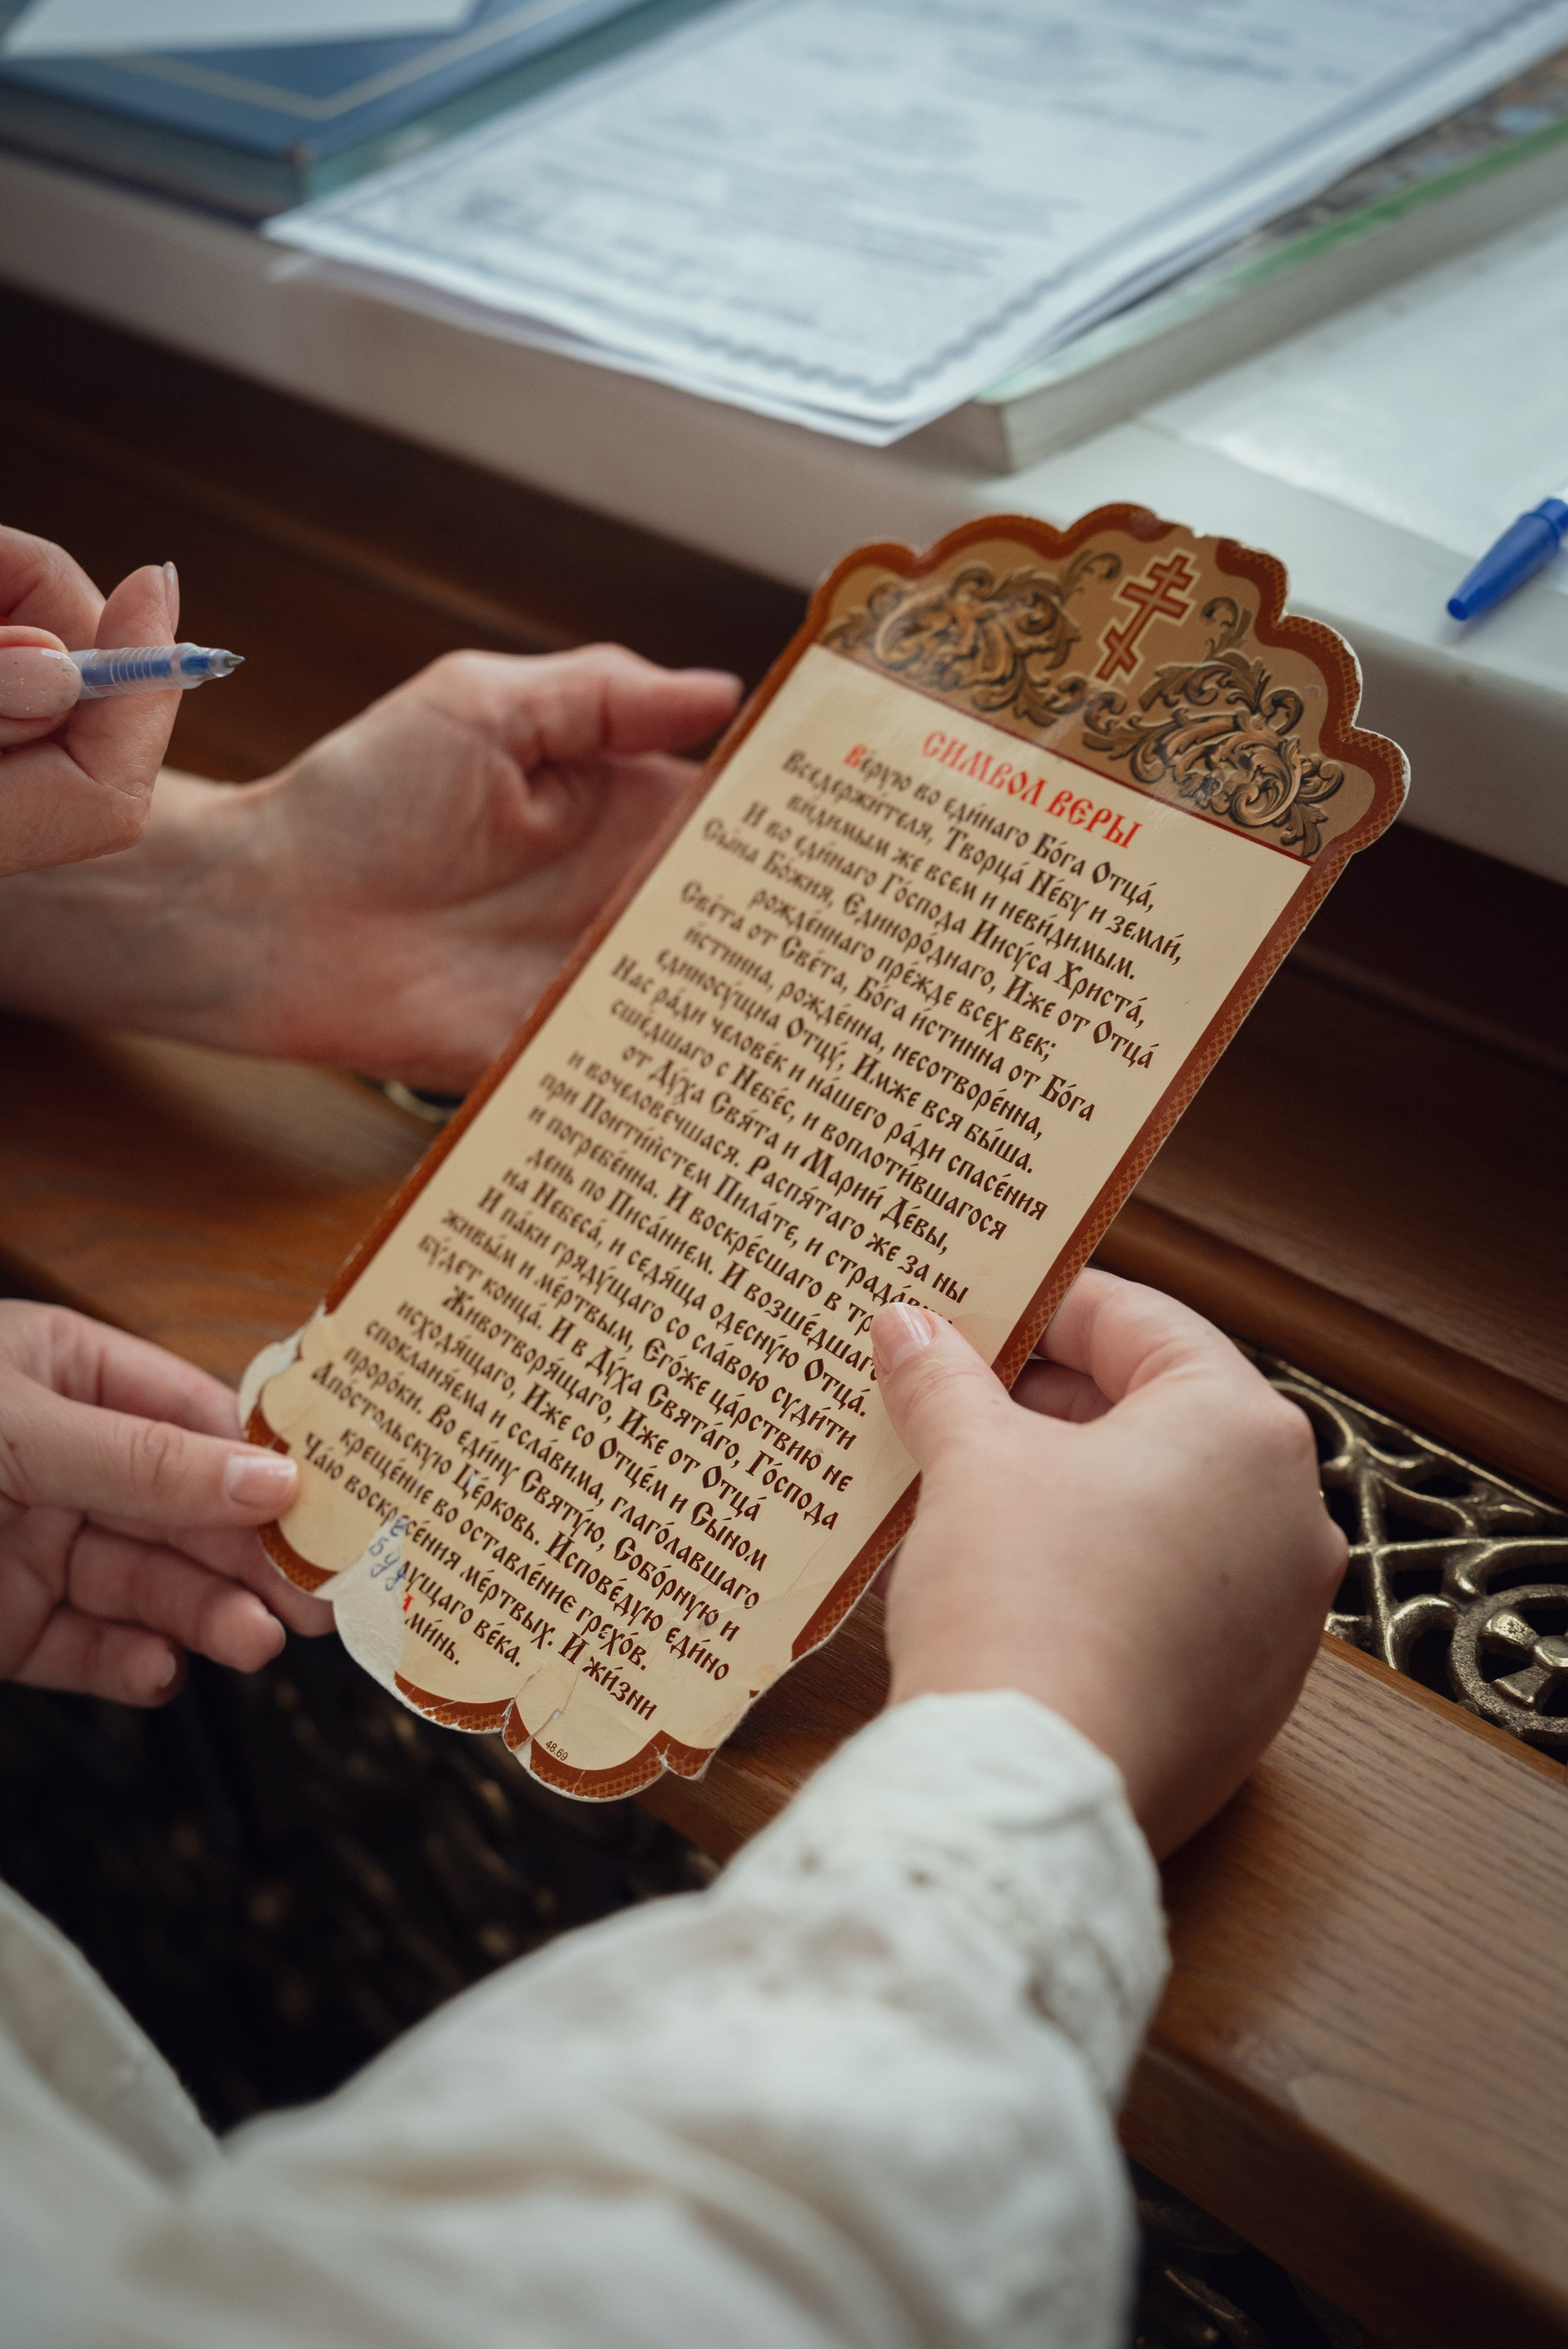 СИМВОЛ ВЕРЫ
Ве́рую во еди́наго Бо́га Отца́,
Вседержи́теля, Творца́ Не́бу и земли́,
види́мым же всем и неви́димым.
И во еди́наго Го́спода Иису́са Христа́,
Сы́на Бо́жия, Единоро́днаго, Иже от Отца́
рожде́ннаго пре́жде всех век;
Све́та от Све́та, Бо́га и́стинна от Бо́га
и́стинна, рожде́нна, несотворе́нна,
единосу́щна Отцу́, Имже вся бы́ша.
Нас ра́ди челове́к и на́шего ра́ди спасе́ния
сше́дшаго с Небе́с, и воплоти́вшагося
от Ду́ха Свя́та и Мари́и Де́вы,
и вочелове́чшася. Распя́таго же за ны
при Понти́йстем Пила́те, и страда́
и погребе́нна. И воскре́сшаго в тр
день по Писа́нием. И возше́дшаго
на Небеса́, и седя́ща одесну́ю Отца́.
И па́ки гряду́щаго со сла́вою суди́ти
живы́м и ме́ртвым, Его́же ца́рствию не
бу́дет конца́. И в Ду́ха Свята́го, Го́спода
Животворя́щаго, Иже от Отца́
исходя́щаго, Иже со Отце́м и Сы́ном
спокланя́ема и ссла́вима, глаго́лавшаго
проро́ки. Во еди́ну Святу́ю, Собо́рную и
Апо́стольскую Це́рковь. Испове́дую еди́но
креще́ние во оставле́ние грехо́в.
Ча́ю воскресе́ния ме́ртвых. И жи́зни
бу́дущаго ве́ка.
Ами́нь.
48.69